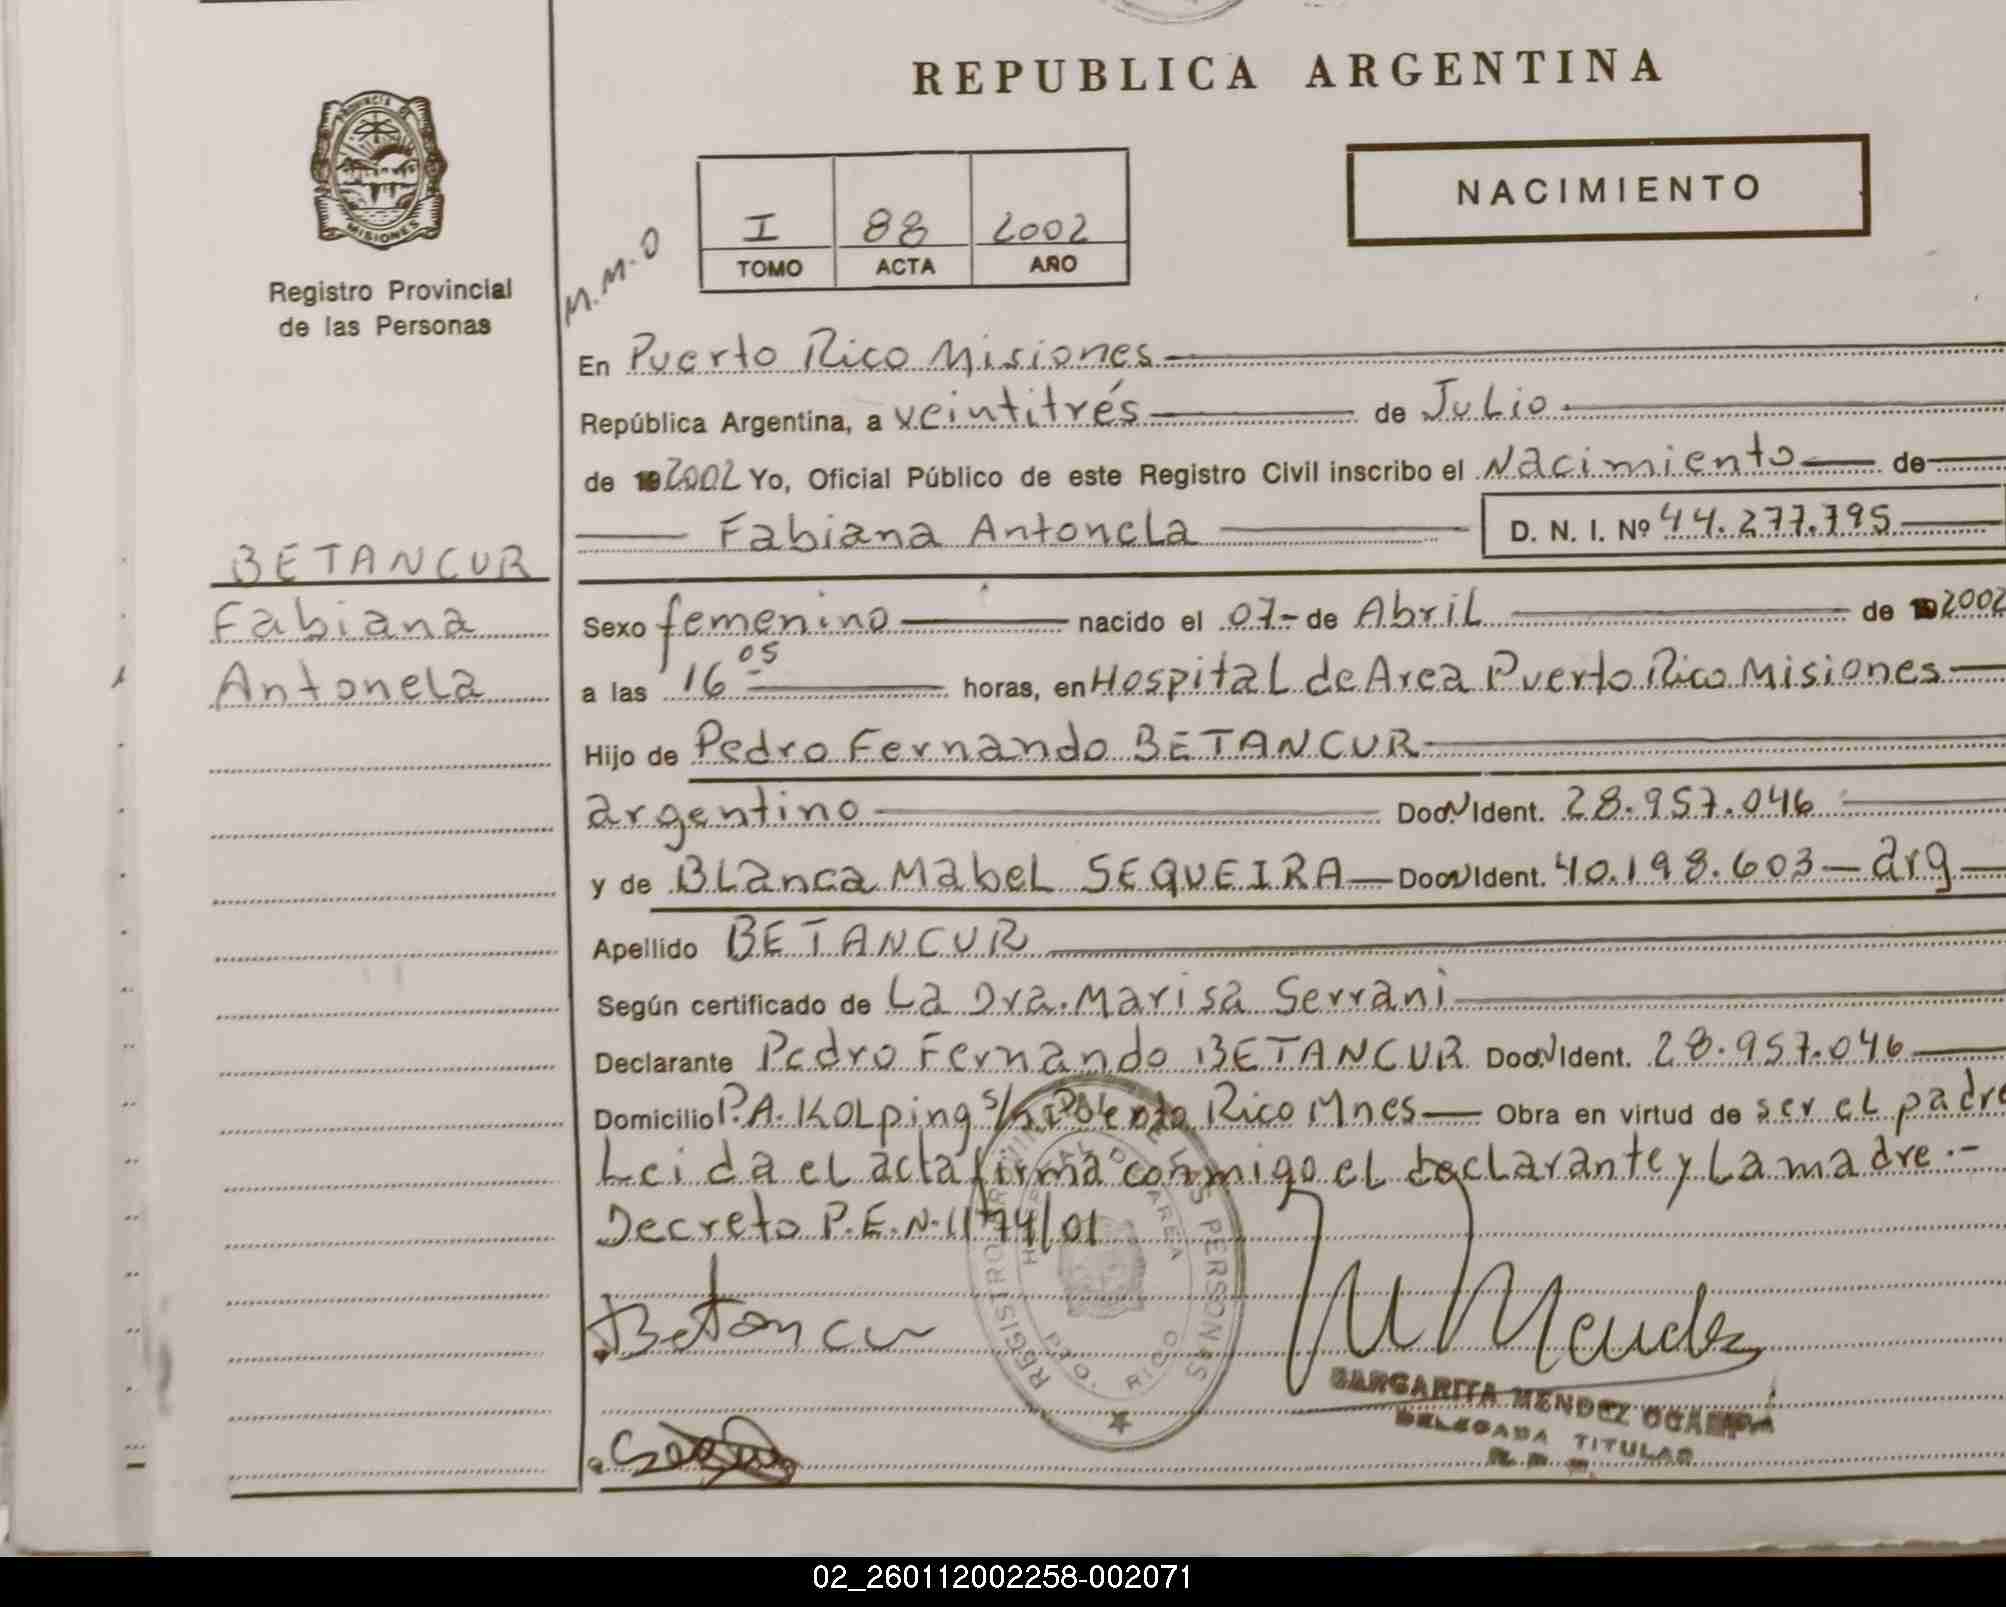 REPUBLICA ARGENTINA
PROVINCIA DE
MISIONES
Registro Provincial
de las Personas
NACIMIENTO
M.M.O
I 88 2002
TOMO ACTA AÑO
En Puerto Rico Misiones
República Argentina, a veintitrés de Julio
de 192002 Yo, Oficial Público de este Registro Civil inscribo el Nacimiento de
Fabiana Antonela D. N. I. Nº 44.277.795
BETANCUR
Fabiana
Antonela
Sexo femenino nacido el 07- de Abril de 192002
a las 16 05 horas, en Hospital de Area Puerto Rico Misiones
Hijo de Pedro Fernando BETANCUR
argentino Doc. N Ident. 28.957.046
y de Blanca Mabel SEQUEIRA Doc. N Ident. 40.198.603 - arg
Apellido BETANCUR
Según certificado de La Dra. Marisa Serrani
Declarante Pedro Fernando BETANCUR Doc. N Ident. 28.957.046
Domicilio P.A. Kolping s/n Puerto Rico Mnes Obra en virtud de ser el padre
Leida el acta firma conmigo el declarante y La madre.-
Decreto P.E.N. 1174/01
Betancur
REGISTRO PROVINCIAL DE LAS PERSONAS
HOSPITAL DE AREA
PTO. RICO
M Mendez
MARGARITA MENDEZ OCAMPO
DELEGADA TITULAR
02_260112002258-002071